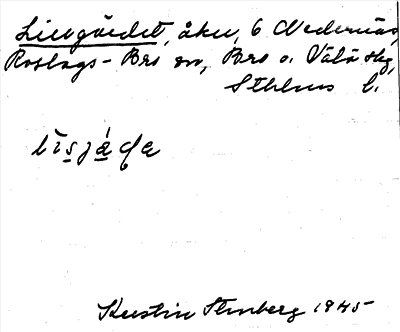 Lissgärdet, åker, 6 Nedernäs,
Roslags-Bro sn, Bro o. Vätö skg,
Sthlms l.
Kerstin Stenberg 1945